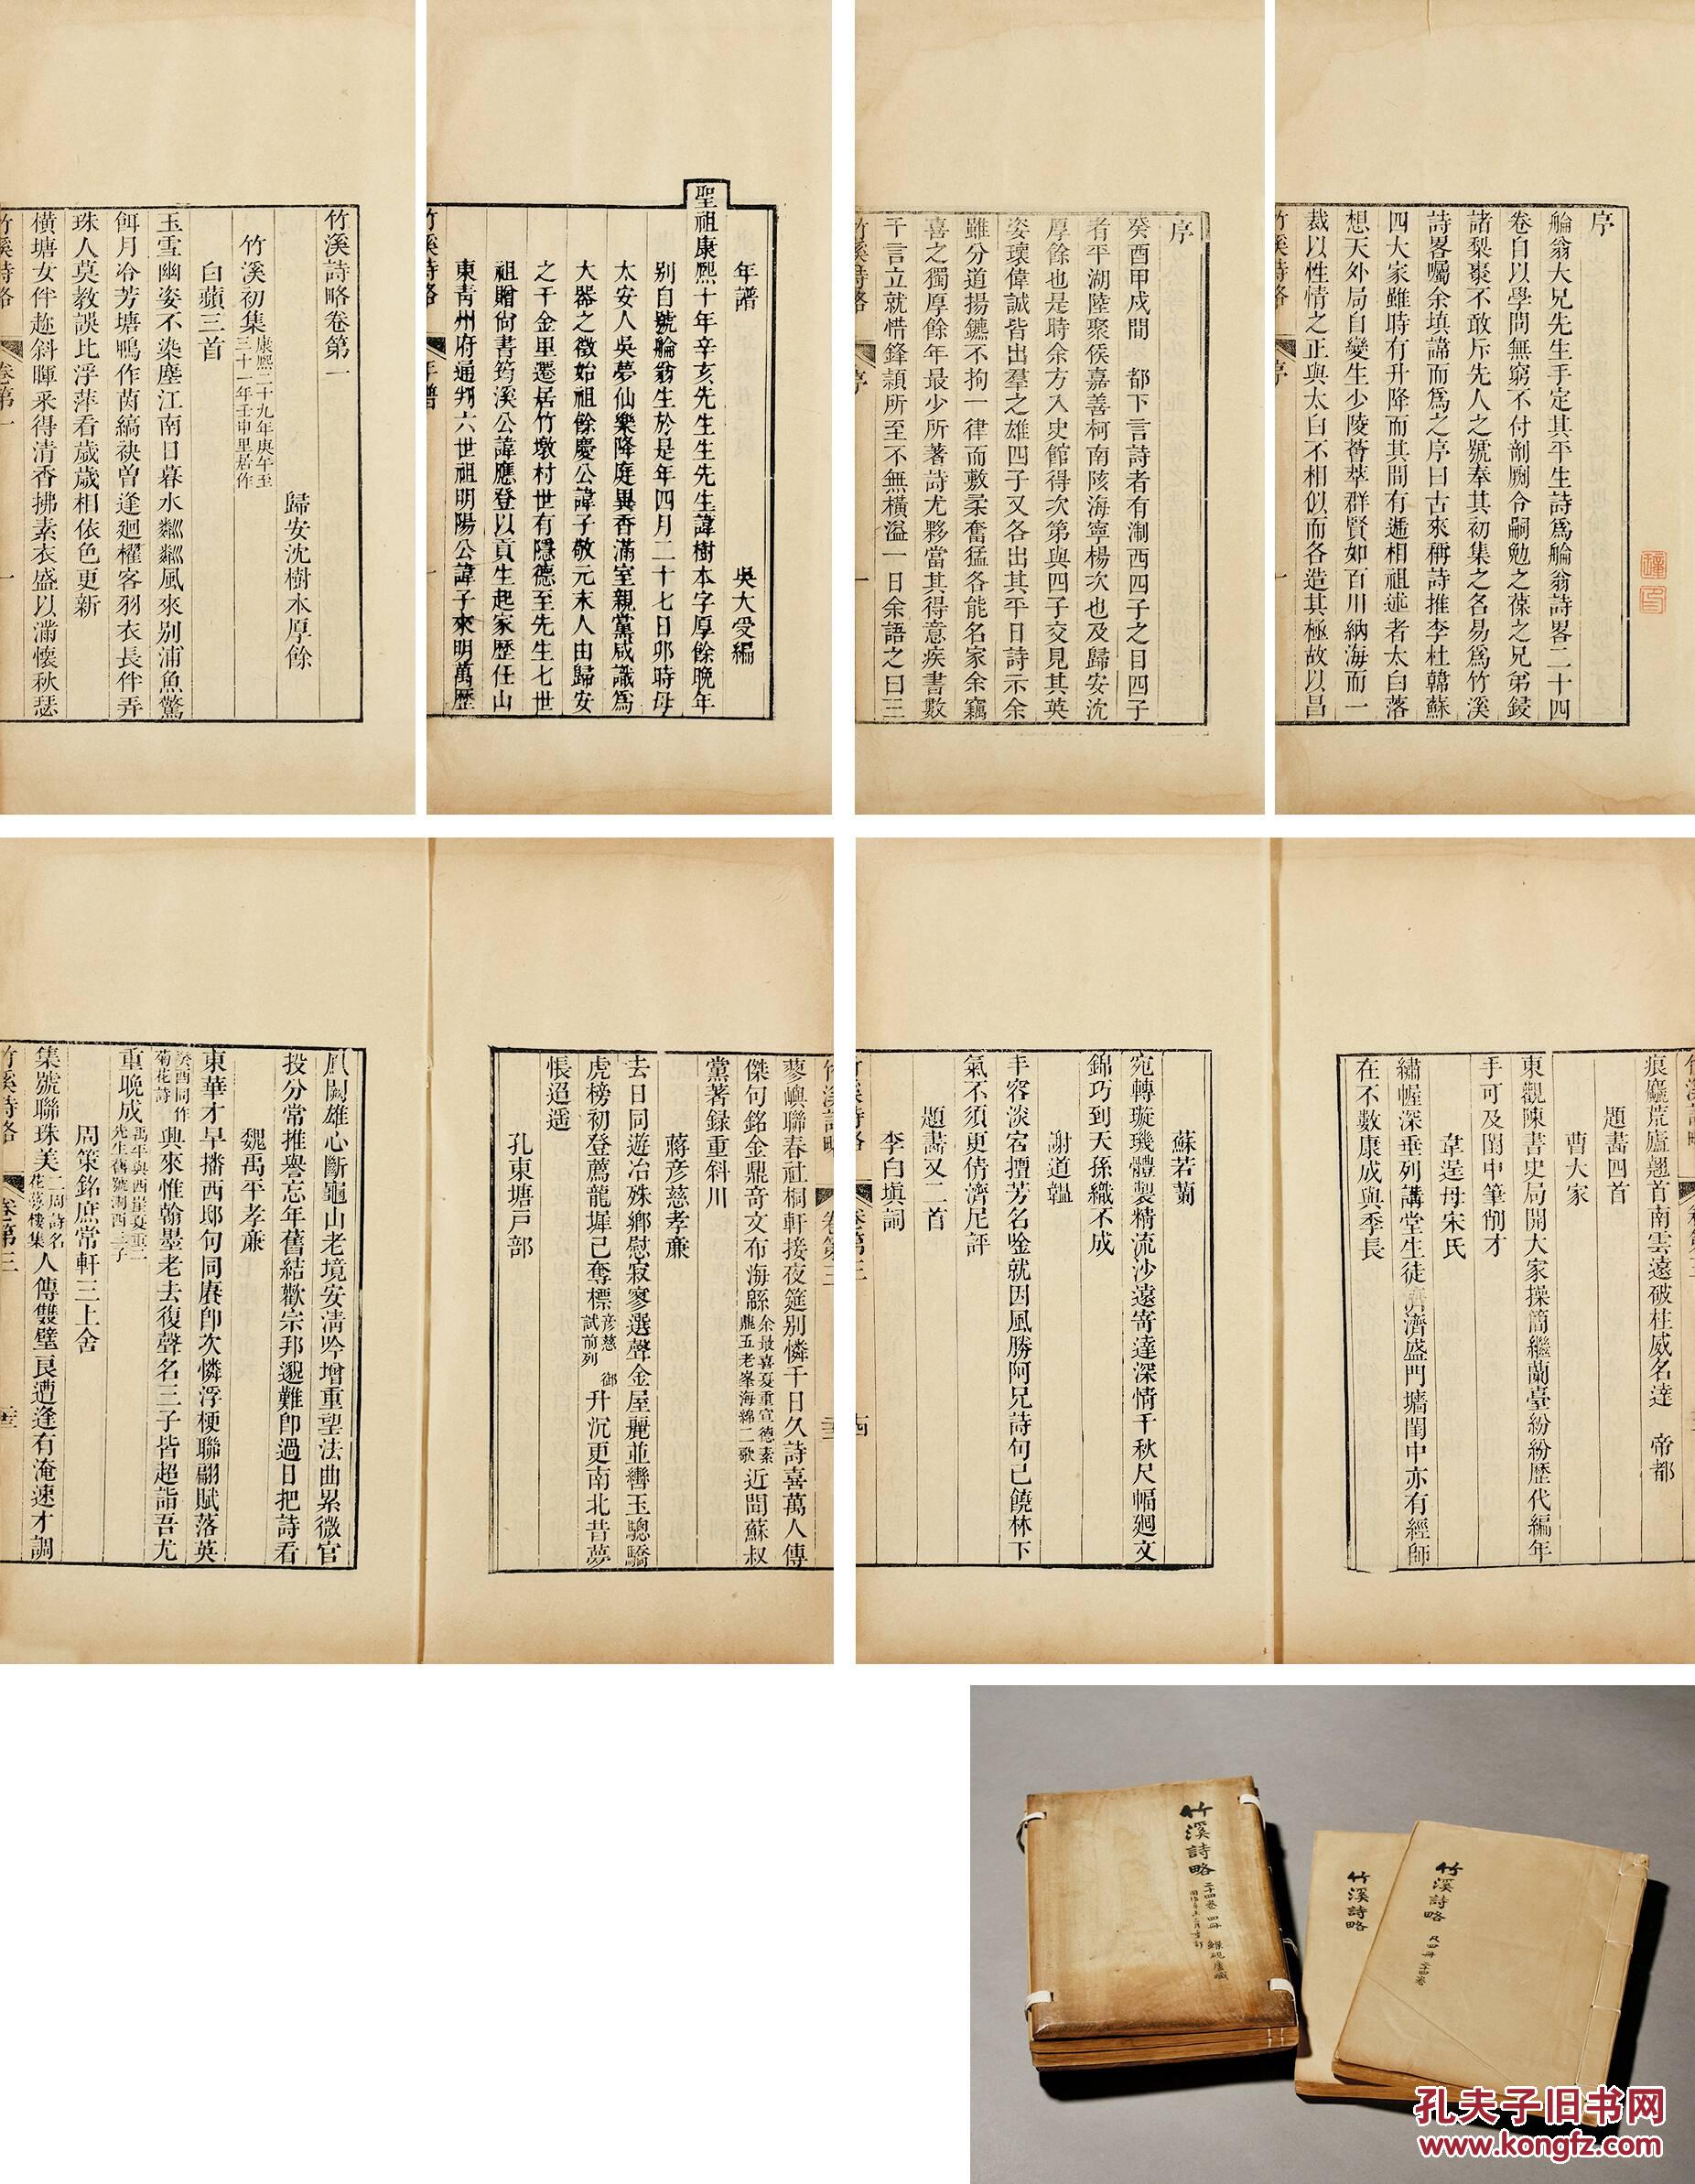 序
艑翁大兄先生手定其平生詩爲艑翁詩畧二十四
卷自以學問無窮不付剞劂令嗣勉之葆之兄弟鋟
諸棃棗不敢斥先人之號奉其初集之名易爲竹溪
詩畧囑余填諱而爲之序曰古來稱詩推李杜韓蘇
四大家雖時有升降而其間有遞相祖述者太白落
想天外局自變生少陵薈萃群賢如百川納海而一
裁以性情之正與太白不相似而各造其極故以昌
竹溪詩略
序
一
序
癸酉甲戍間 都下言詩者有淛西四子之目四子
者平湖陸聚侯嘉善柯南陔海寧楊次也及歸安沈
厚餘也是時余方入史館得次第與四子交見其英
姿瓌偉誠皆出羣之雄四子又各出其平日詩示余
雖分道揚鑣不拘一律而敷柔奮猛各能名家余竊
喜之獨厚餘年最少所著詩尤夥當其得意疾書數
千言立就惜鋒頴所至不無橫溢一日余語之曰三
竹溪詩略
序
一
年譜
吳大受編
聖祖康熙十年辛亥先生生先生諱樹本字厚餘晩年
別自號艑翁生於是年四月二十七日卯時母
太安人吳夢仙樂降庭異香滿室親黨咸識爲
大器之徵始祖餘慶公諱子敬元末人由歸安
之千金里遷居竹墩村世有隱德至先生七世
祖贈尙書筠溪公諱應登以貢生起家歷任山
東青州府通判六世祖明陽公諱子來明萬歷
竹溪詩略
年譜
一
竹溪詩略卷第一
歸安沈樹本厚餘
竹溪初集康熙二十九年庚午至三十一年壬申里居作
白蘋三首
玉雪幽姿不染塵江南日暮水粼粼風來別浦魚驚
餌月冷芳塘鴨作茵縞袂曾逢廻櫂客羽衣長伴弄
珠人莫教誤比浮萍看歲歲相依色更新
橫塘女伴趂斜暉采得清香拂素衣盛以滿懷秋瑟
竹溪詩略
卷第一
一
痕龎荒廬翹首南雲遠破柱威名達 帝都
題畵四首
曹大家
東觀陳書史局開大家操簡繼蘭臺紛紛歷代編年
手可及閨中筆削才
韋逞母宋氏
繡幄深垂列講堂生徒濟濟盛門墻閨中亦有經師
在不數康成與季長
蘇若蘭
宛轉璇璣體製精流沙遠寄達深情千秋尺幅廻文
錦巧到天孫織不成
謝道韞
手容淡宕擅芳名唫就因風勝阿兄詩句已饒林下
氣不須更倩濟尼評
題畵又二首
李白塡詞
竹溪詩略
卷第三
蓼嶼聯春社桐軒接夜筵別憐千日久詩喜萬人傳
傑句銘金鼎奇文布海縣余最喜夏重宣德素鼎五老峯海綿二歌近聞蘇叔
黨著録重斜川
蔣彦慈孝亷
去日同遊冶殊鄉慰寂寥選聲金屋麗並轡玉驄驕
虎榜初登薦龍墀已奪標彦慈 御試前列升沉更南北昔夢
悵迢遥
孔東塘戸部
鳳闕雄心斷龜山老境安清吟增重望法曲累微官
投分常推譽忘年舊結歡宗邦邈難卽過日把詩看
魏禹平孝亷
東華才早播西邸句同賡卽次憐浮梗聯翩賦落英
癸酉同作菊花詩典來惟翰墨老去復聲名三子皆超詣吾尤
重晩成禹平與西崖夏重二先生舊號淛西三子
周策銘庶常軒三上舍
集號聯珠美二周詩名花萼樓集人傳雙璧良遭逢有淹速才調
竹溪詩略
卷第三
竹溪詩略 二十四卷 四冊
竹溪詩略
竹溪詩略 凡四冊 二十四卷
孔夫子旧书网
www.kongfz.com